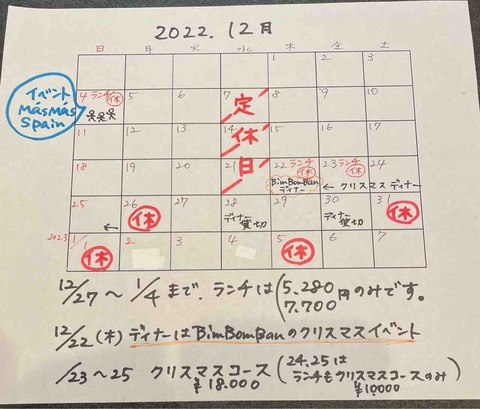 2022.12月
日 月 火 水 木 金 土
1 2 3
イベント
MásMás
Spain
4 ランチ休 5 6 7 定 8 9 10
呉呉呉
11 12 13 14 休 15 16 17
18 19 20 21 日 22 ランチ休 23 ランチ休 24
BimBomBan
ディナー
← クリスマスディナー
25 26 27 28 29 30 31
← 休 ディナー貸切 ディナー貸切 休
2023 1/1 2 3 4 5 6 7
休 休
12/27〜1/4まで、ランチは(5.280
7.700円のみです。
12/22(木)ディナーはBimBomBanのクリスマスイベント
/23〜25 クリスマスコース(24.25は
¥18.000 ランチもクリスマスコースのみ)
¥10000